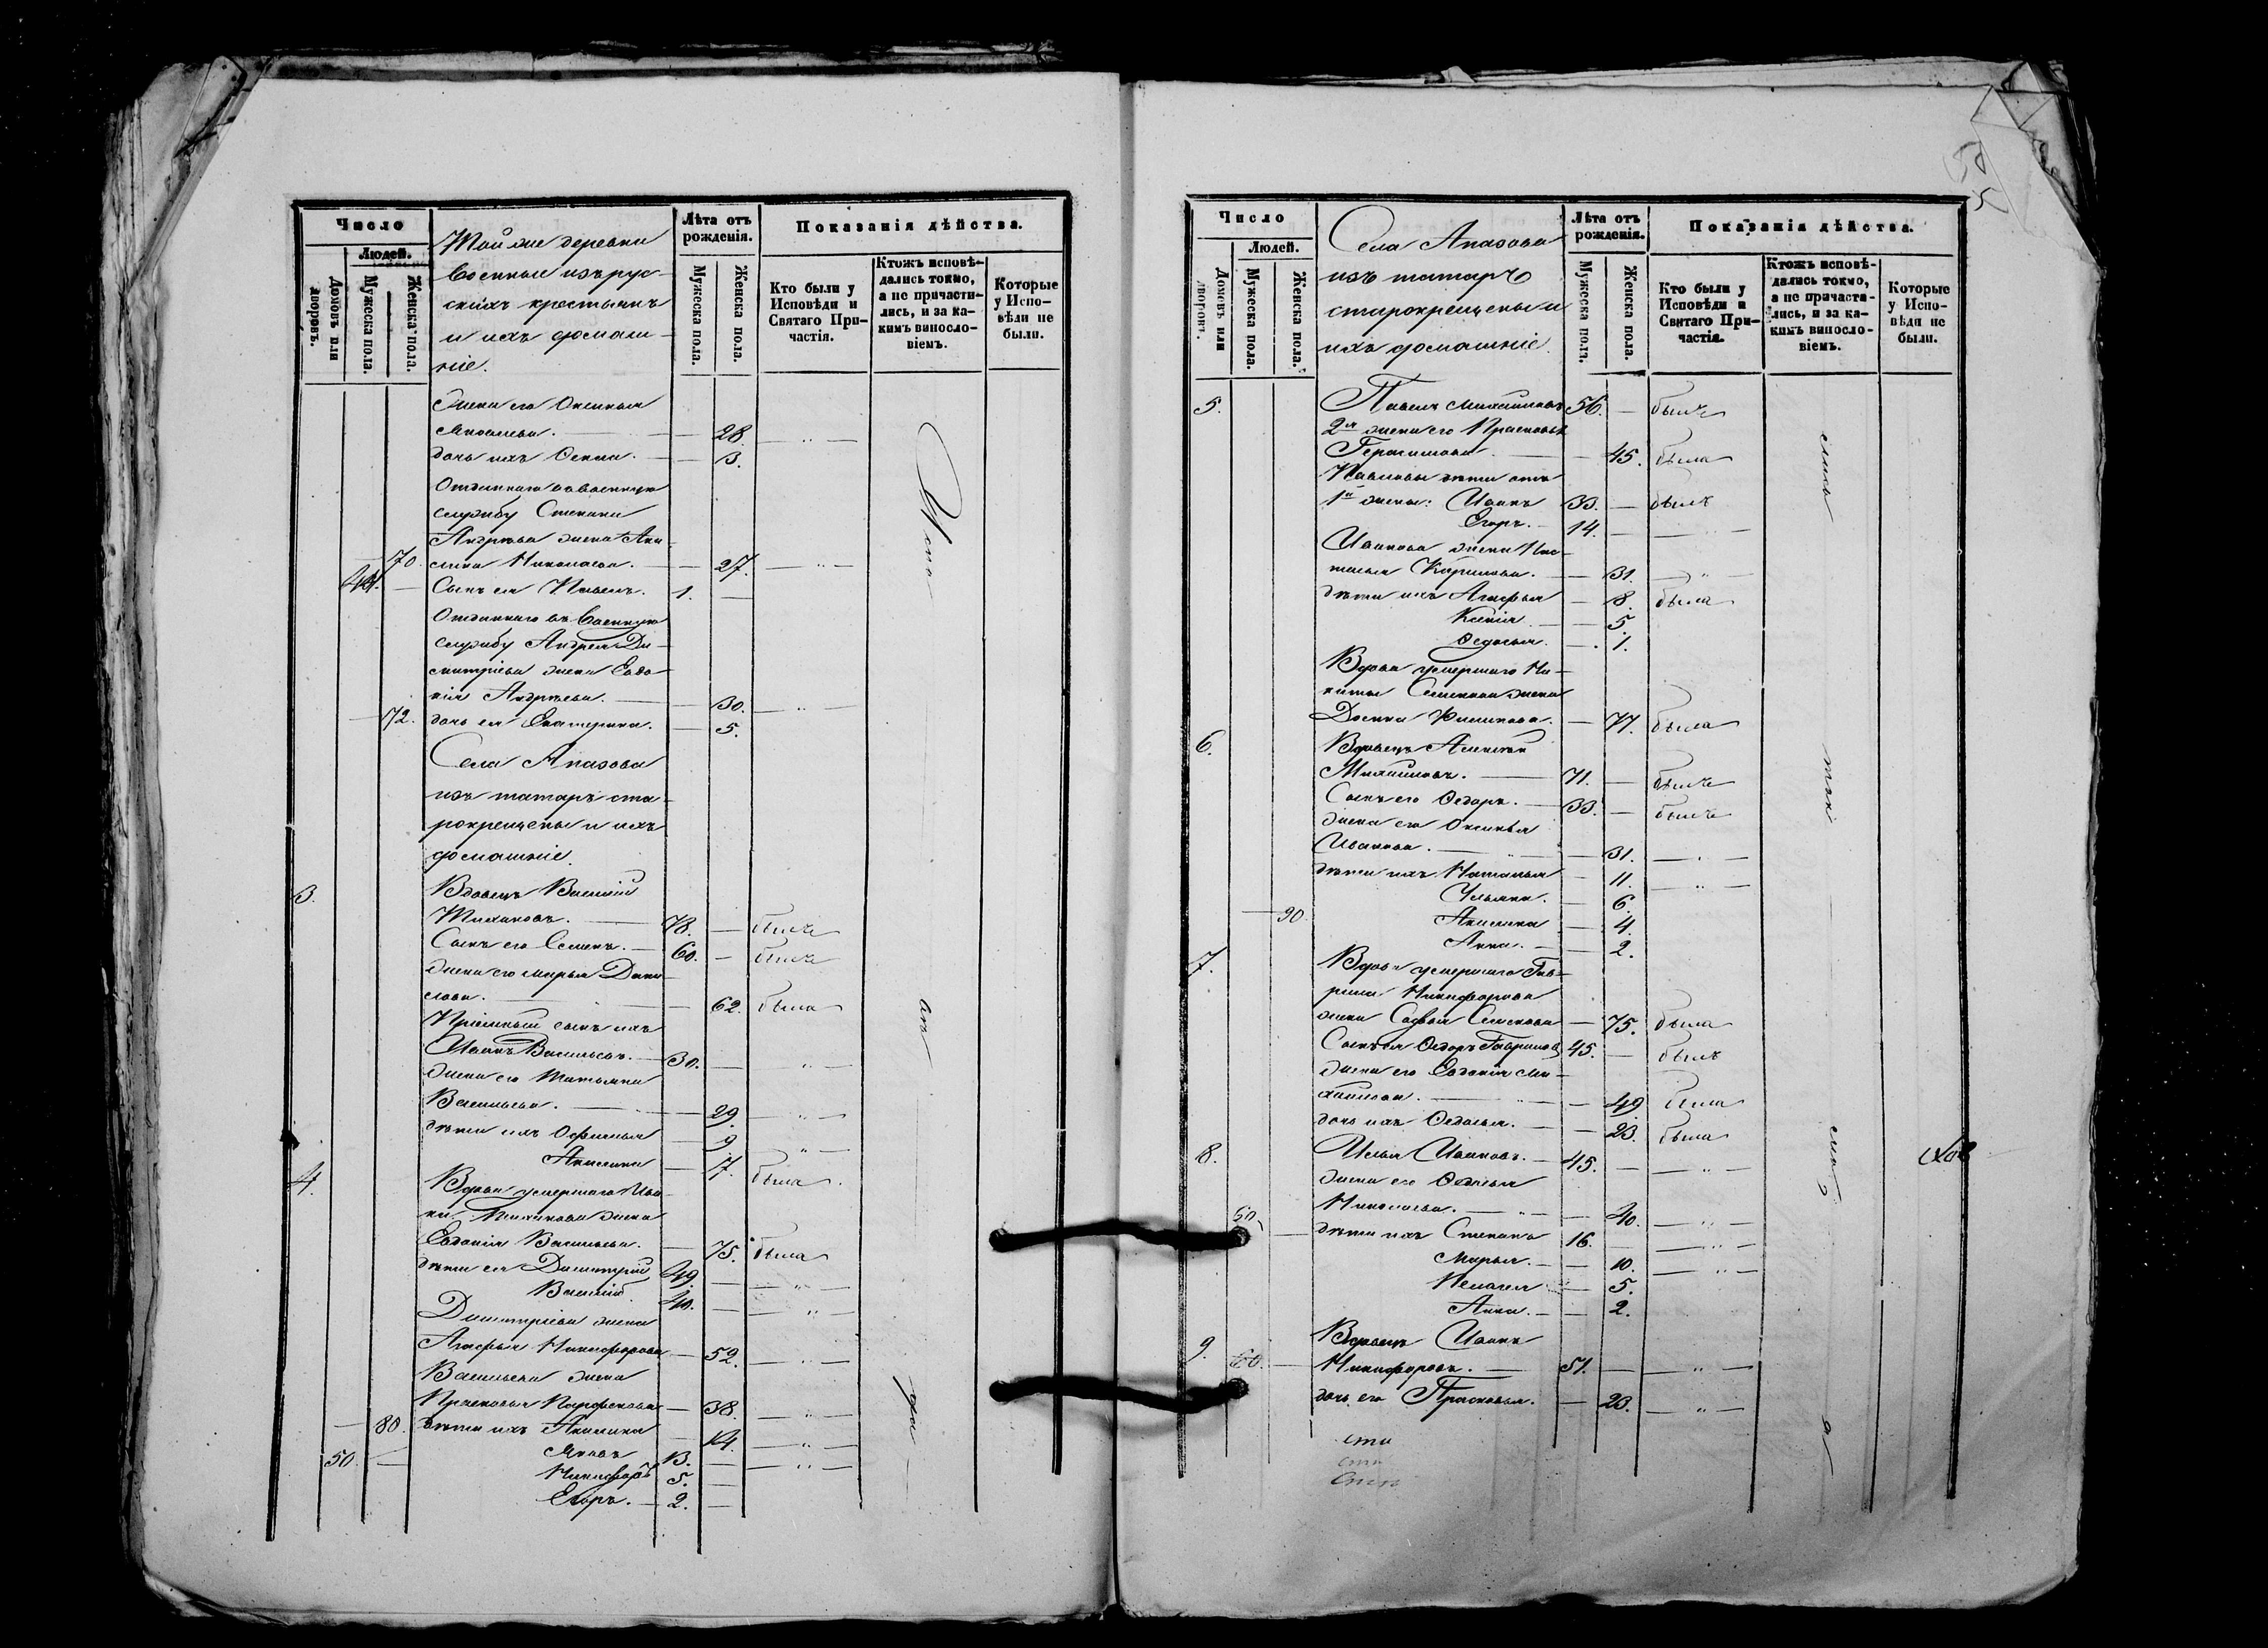 Число
Людей.
Домовъ или дворовъ.
Мужеска пола.
Женска пола.
Той же деревни
Военные изъ рус-
скихъ крестьянъ
и ихъ домаш-
ніе.
Лѣта отъ рожденія.
Мужеска пола.
Женска пола.
Показанія дѣйства.
Кто были у Исповѣди и Святаго При-частія.
Ктожъ исповѣ-дались токмо, а не причасти-лись, и за ка-кимъ винос­ло-віемъ.
Которые у Испо-вѣди не были.
Жена его Оксинья
Яковлева. — 28. — „ —
дочь ихъ Сенья. — 3.
Отданнаго въ военную
службу Степана
Андреева жена Аки-
70. лина Николаева. — 27. — „ —
44. — Сынъ ея Павелъ. 1. —
Отданнаго въ Военную
службу Андрея Ди-
митріева жена Евдо-
кія Андреева. — 30. — „ —
— 72. дочь ея Екатерина. — 5.
Села Апазова
изъ татаръ ста-
рокрещены и ихъ
домашніе.
3. Вдовецъ Василій
Тихановъ. — 78. — былъ
Сынъ его Семенъ. — 60. — былъ
Жена его Марья Дани-
лова. — 62. была
Пріемный сынъ ихъ
Иванъ Васильевъ. — 30. — „ —
Жена его Татьяна
Васильева. — 29. — „ —
дѣти ихъ Офимья — 9 — „ —
Акилина — 7. была.
4. Вдова умершаго Ива-
на Тиханова жена
Евдокія Васильева. — 75. была
дѣти ея Димитрій 49. — „ —
Василій 40. — „ —
Димитріева жена
Агафья Никифорова — 52. — „ —
Васильева жена
Прасковья Парфенова — 38. — „ —
— 80. дѣти ихъ Акилина — 14. — „ —
50. — Яковъ 13. — „ —
Никифоръ 5. —
Егоръ. — 2. —
Число
Людей.
Домовъ или дворовъ.
Мужеска пола.
Женска пола.
Села Апазова
изъ татаръ
старокрещены и
ихъ домашніе.
Лѣта отъ рожденія.
Мужеска пола.
Женска пола.
Показанія дѣйства.
Кто были у Исповѣди и Святаго При-частія.
Ктожъ исповѣ-дались токмо, а не причасти-лись, и за ка-кимъ винос­ло-віемъ.
Которые у Испо-вѣди не были.
5. Павелъ Михайловъ 56. — былъ
2я жена его Прасковья
Герасимова — 45. была
Павловы дѣти отъ
1й жены: Иванъ 33. — былъ
Егоръ. — 14. — —
Иванова жена На-
талья Кирилова. — 31. — „ —
дѣти ихъ Агафья — 8. была
Ксенія — 5.
Федосья. — 1.
Вдова умершаго Ни-
киты Семенова жена
Домна Филипова. — 77. была
6. Вдовецъ Алексѣй
Михайловъ. — 71. — былъ
Сынъ его Федоръ. — 33. — былъ
Жена его Оксинья
Иванова. — 31. — „ —
дѣти ихъ Наталья — 11. — „ —
Ульяна. — 6.
— 90. Акилина — 4.
Анна. — 2.
7. Вдова умершаго Гав-
рила Никифорова
жена Софья Семенова — 75. была
Сынъ ея Федоръ Гавриловъ 45. — былъ
Жена его Евдокія Ми-
хайлова. — 49 была
дочь ихъ Федосья. — 23. была
8. Илья Ивановъ. — 45. — „ —
Жена его Федосья
Николаева. — 40. — „ —
дѣти ихъ Степанъ 16. — „ —
Марья. — 10. — „ —
Пелагея — 5.
Анна. — 2.
9. 60. — Вдовецъ Иванъ
Никифоровъ. — 51. — „ —
дочь его Прасковья. — 23. — „ —